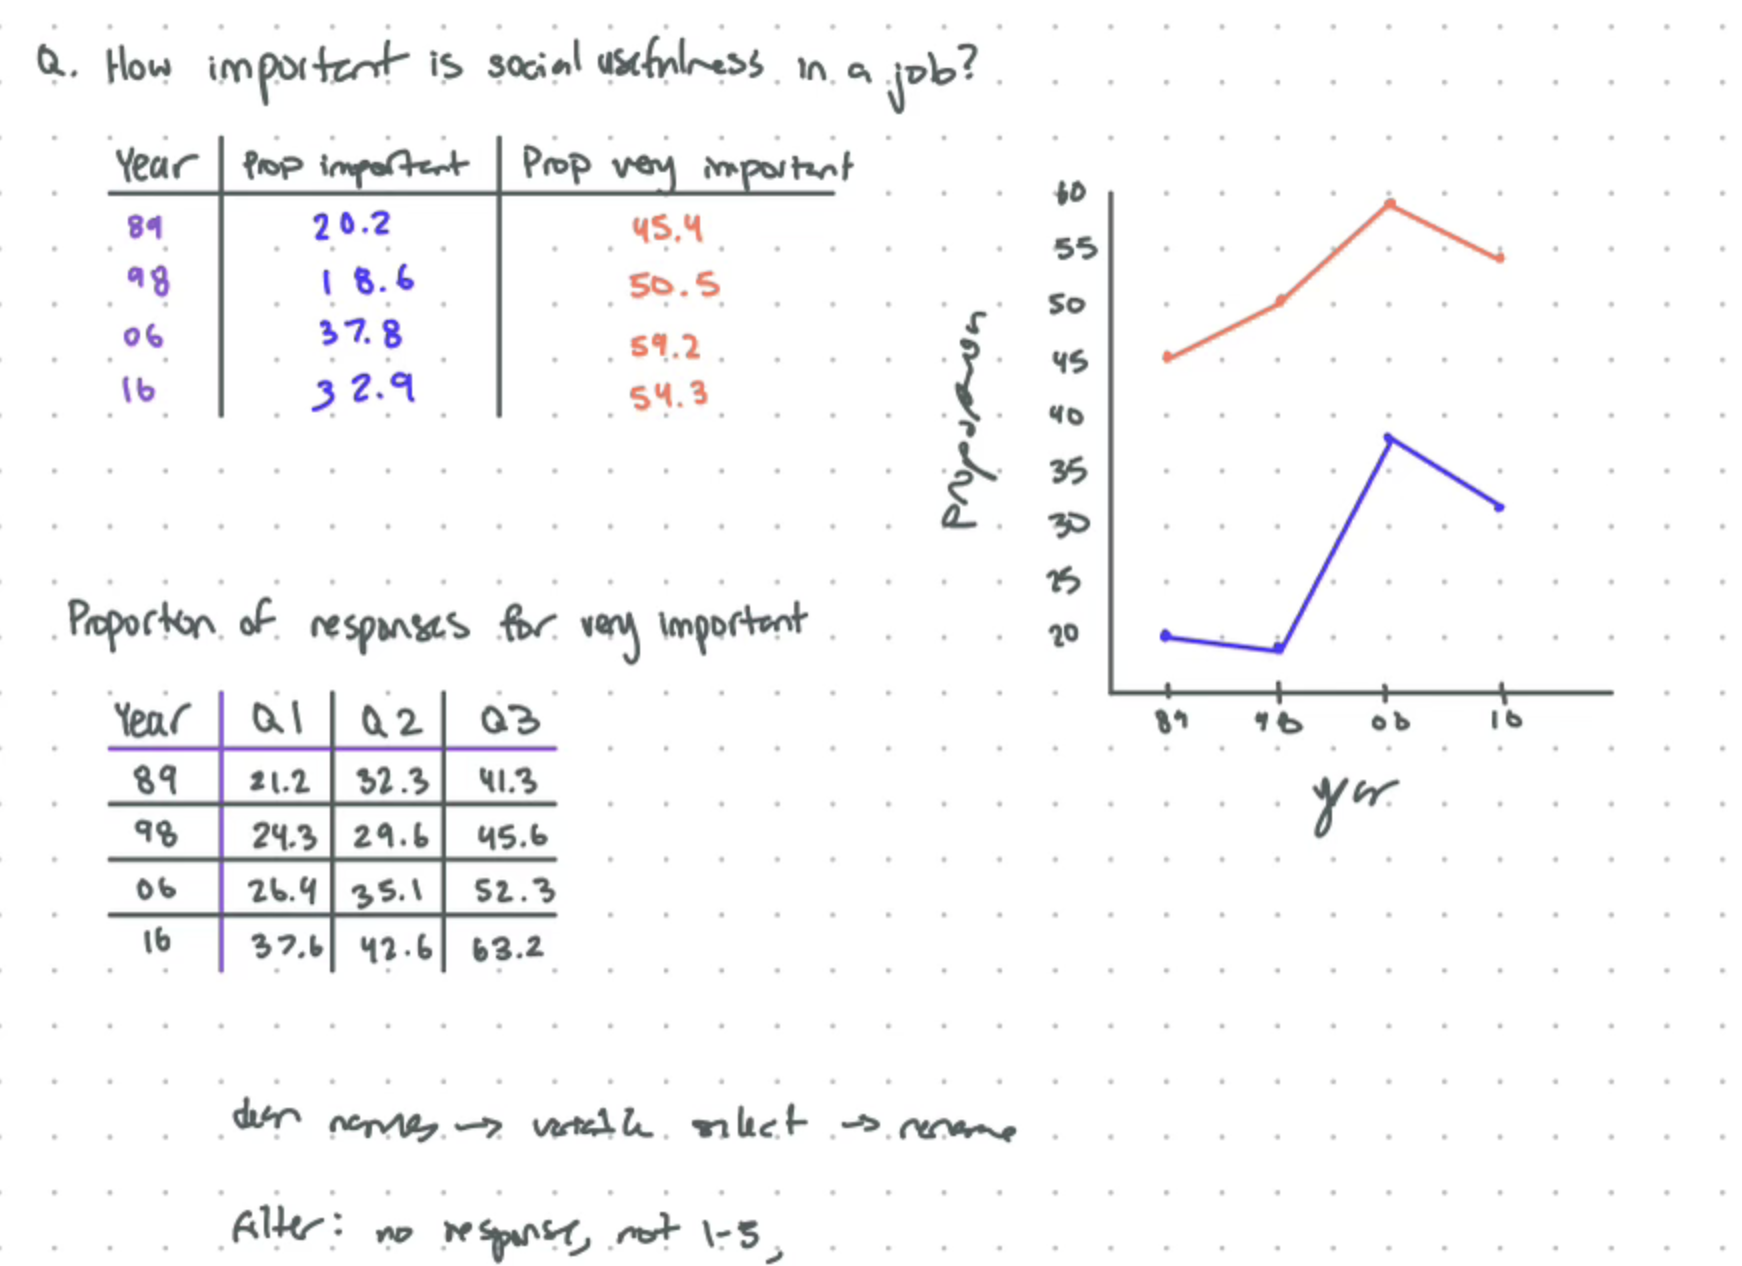 Q. How important is social usefulness in a job?
Year Prop important Prop very important
89 20.2 45.4
98 18.6 50.5
06 37.8 59.2
16 32.9 54.3
Proportion
60
55
50
45
40
35
30
25
20
89 98 06 16
year
Proportion of responses for very important
Year Q1 Q2 Q3
89 21.2 32.3 41.3
98 24.3 29.6 45.6
06 26.4 35.1 52.3
16 37.6 42.6 63.2
clean names → variable select → rename
filter: no response, not 1-5,